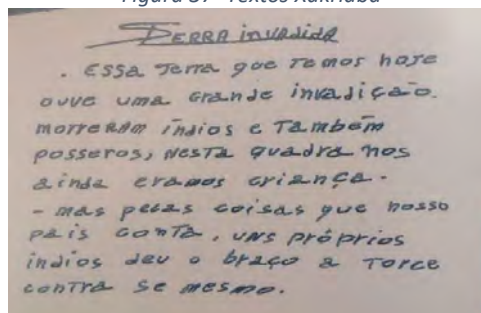 Figura 37- Textos Xakriabá
TERRA invadida
. ESSA Terra que temos hoje
ouve uma grande invadição.
morreram índios e também
posseros, nesta quadra nos
ainda eramos criança.
- mas pelas coisas que nosso
pais conta, uns próprios
indios deu o braço a torce
contra se mesmo.